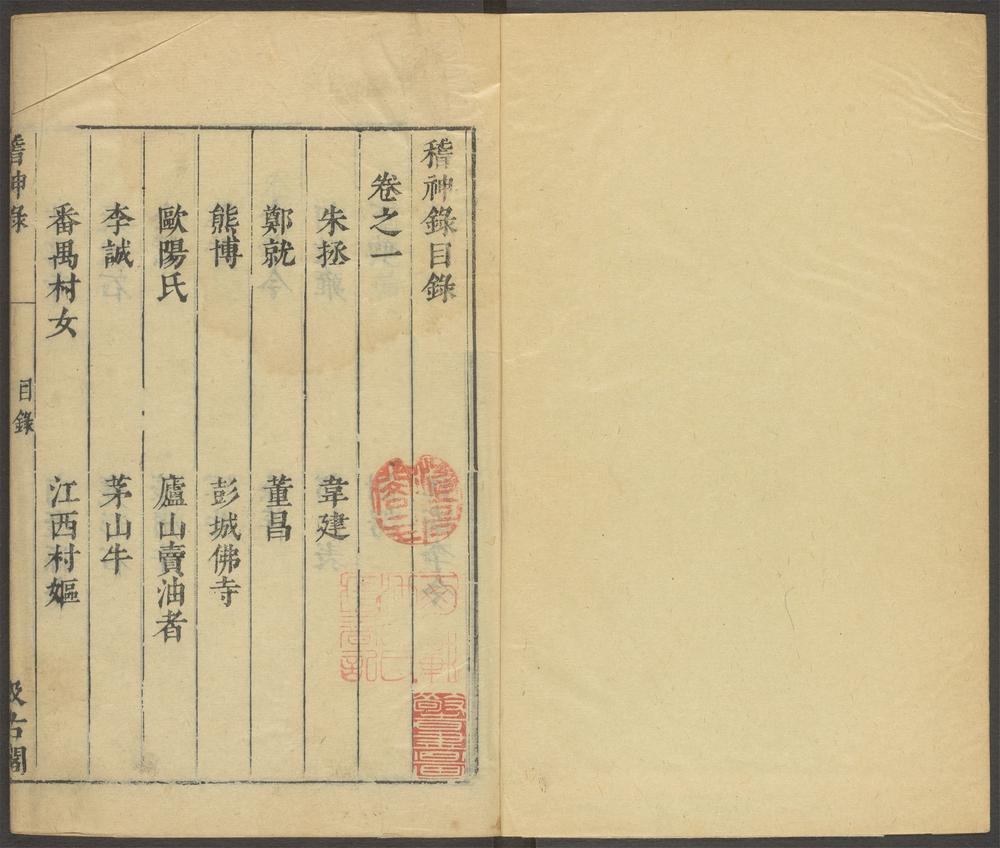 稽神錄目錄
卷之一
朱拯
韋建
鄭就
董昌
熊博
彭城佛寺
歐陽氏
廬山賣油者
李誠
茅山牛
番禺村女
江西村嫗
稽神錄
目錄
汲古閣